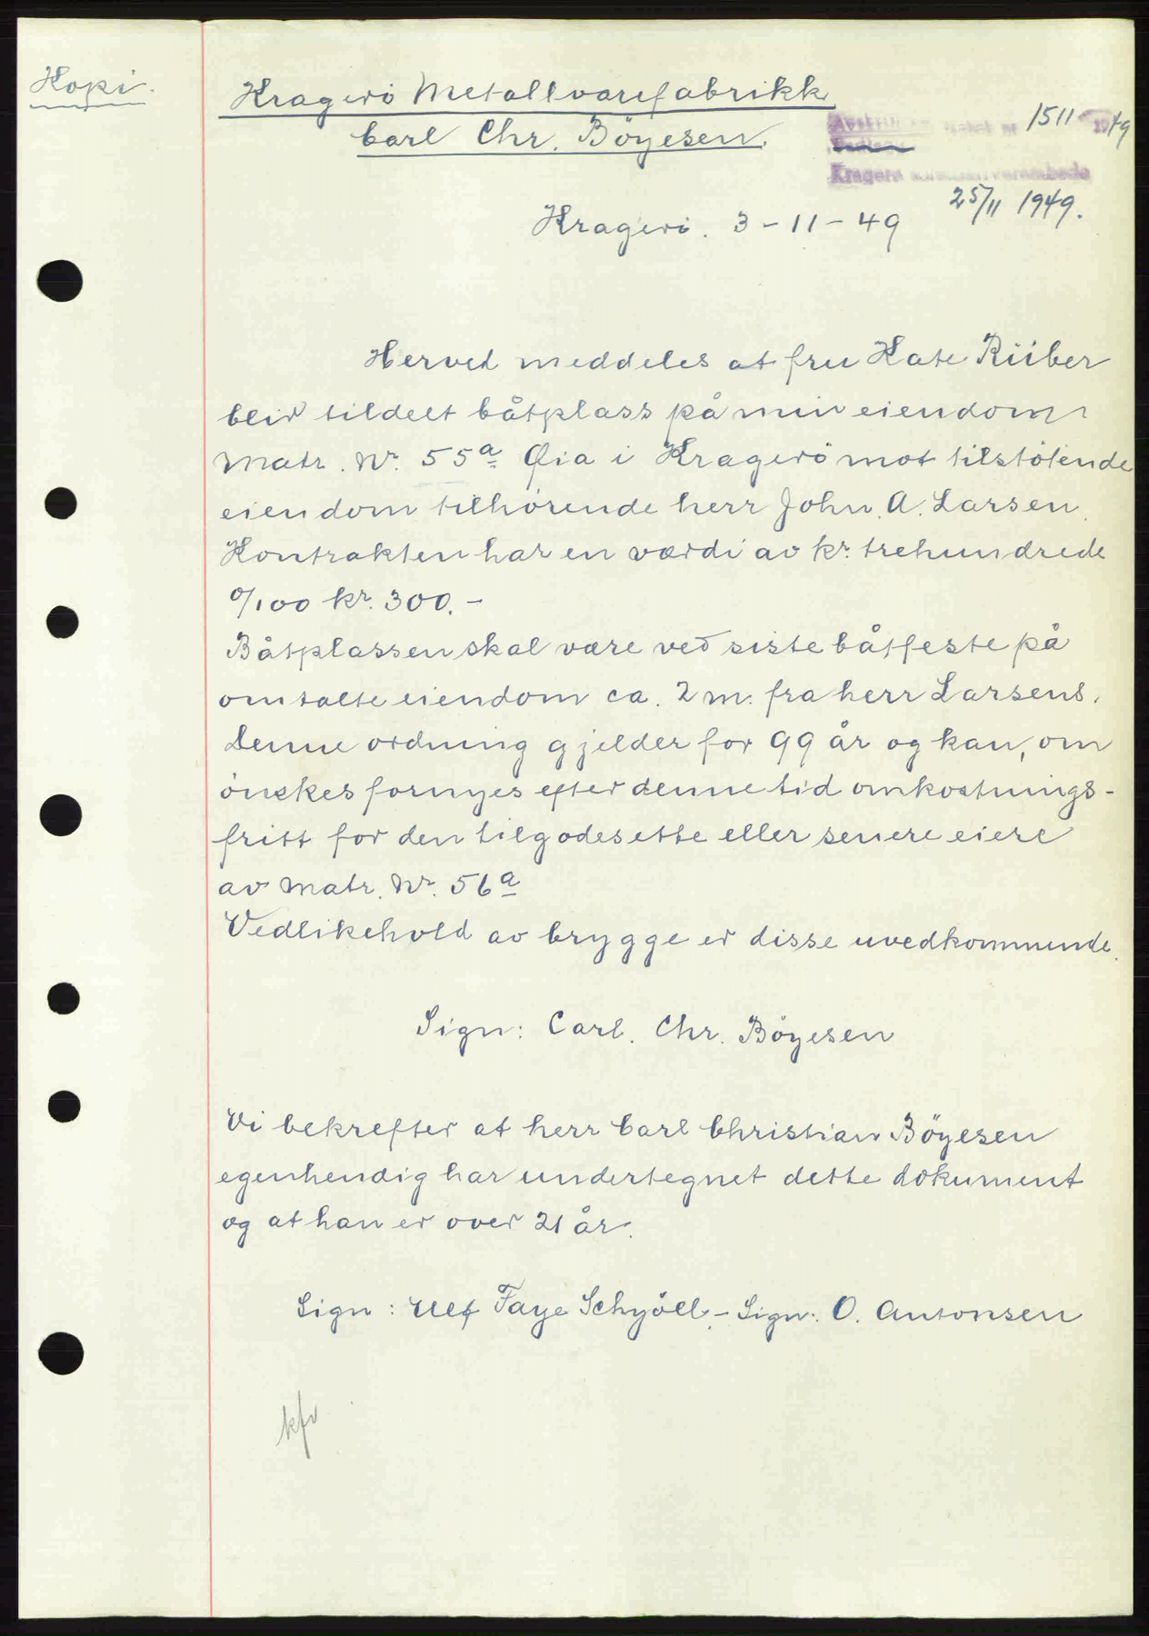 Kopi.
Kragerö Metallvarefabrikk
Carl Chr. Böyesen.
1511 1949
25/11 1949.
Kragerö. 3-11-49
Herved meddeles at fru Kate Riiber
blir tildelt båtplass på min eiendom
Matr. Nr. 55a Øia i Kragerö mot tilstötende
eiendom tilhörende herr John. A. Larsen.
Kontrakten har en værdi av kr. trehundrede
0/100 kr. 300.-
Båtplassen skal være ved siste båtfeste på
omtalte eiendom ca. 2 m. fra herr Larsens.
Denne ordning gjelder for 99 år og kan, om
önskes fornyes efter denne tid omkostnings-
fritt for den tilgodesette eller senere eiere
av Matr. Nr. 56a
Vedlikehold av brygge er disse uvedkommende.
Sign: Carl. Chr. Böyesen
Vi bekrefter at herr Carl Christian Böyesen
egenhendig har undertegnet dette dokument
og at han er over 21 år.
Sign: Ulf Faye Schjöll - Sign: O. Antonsen
kfr